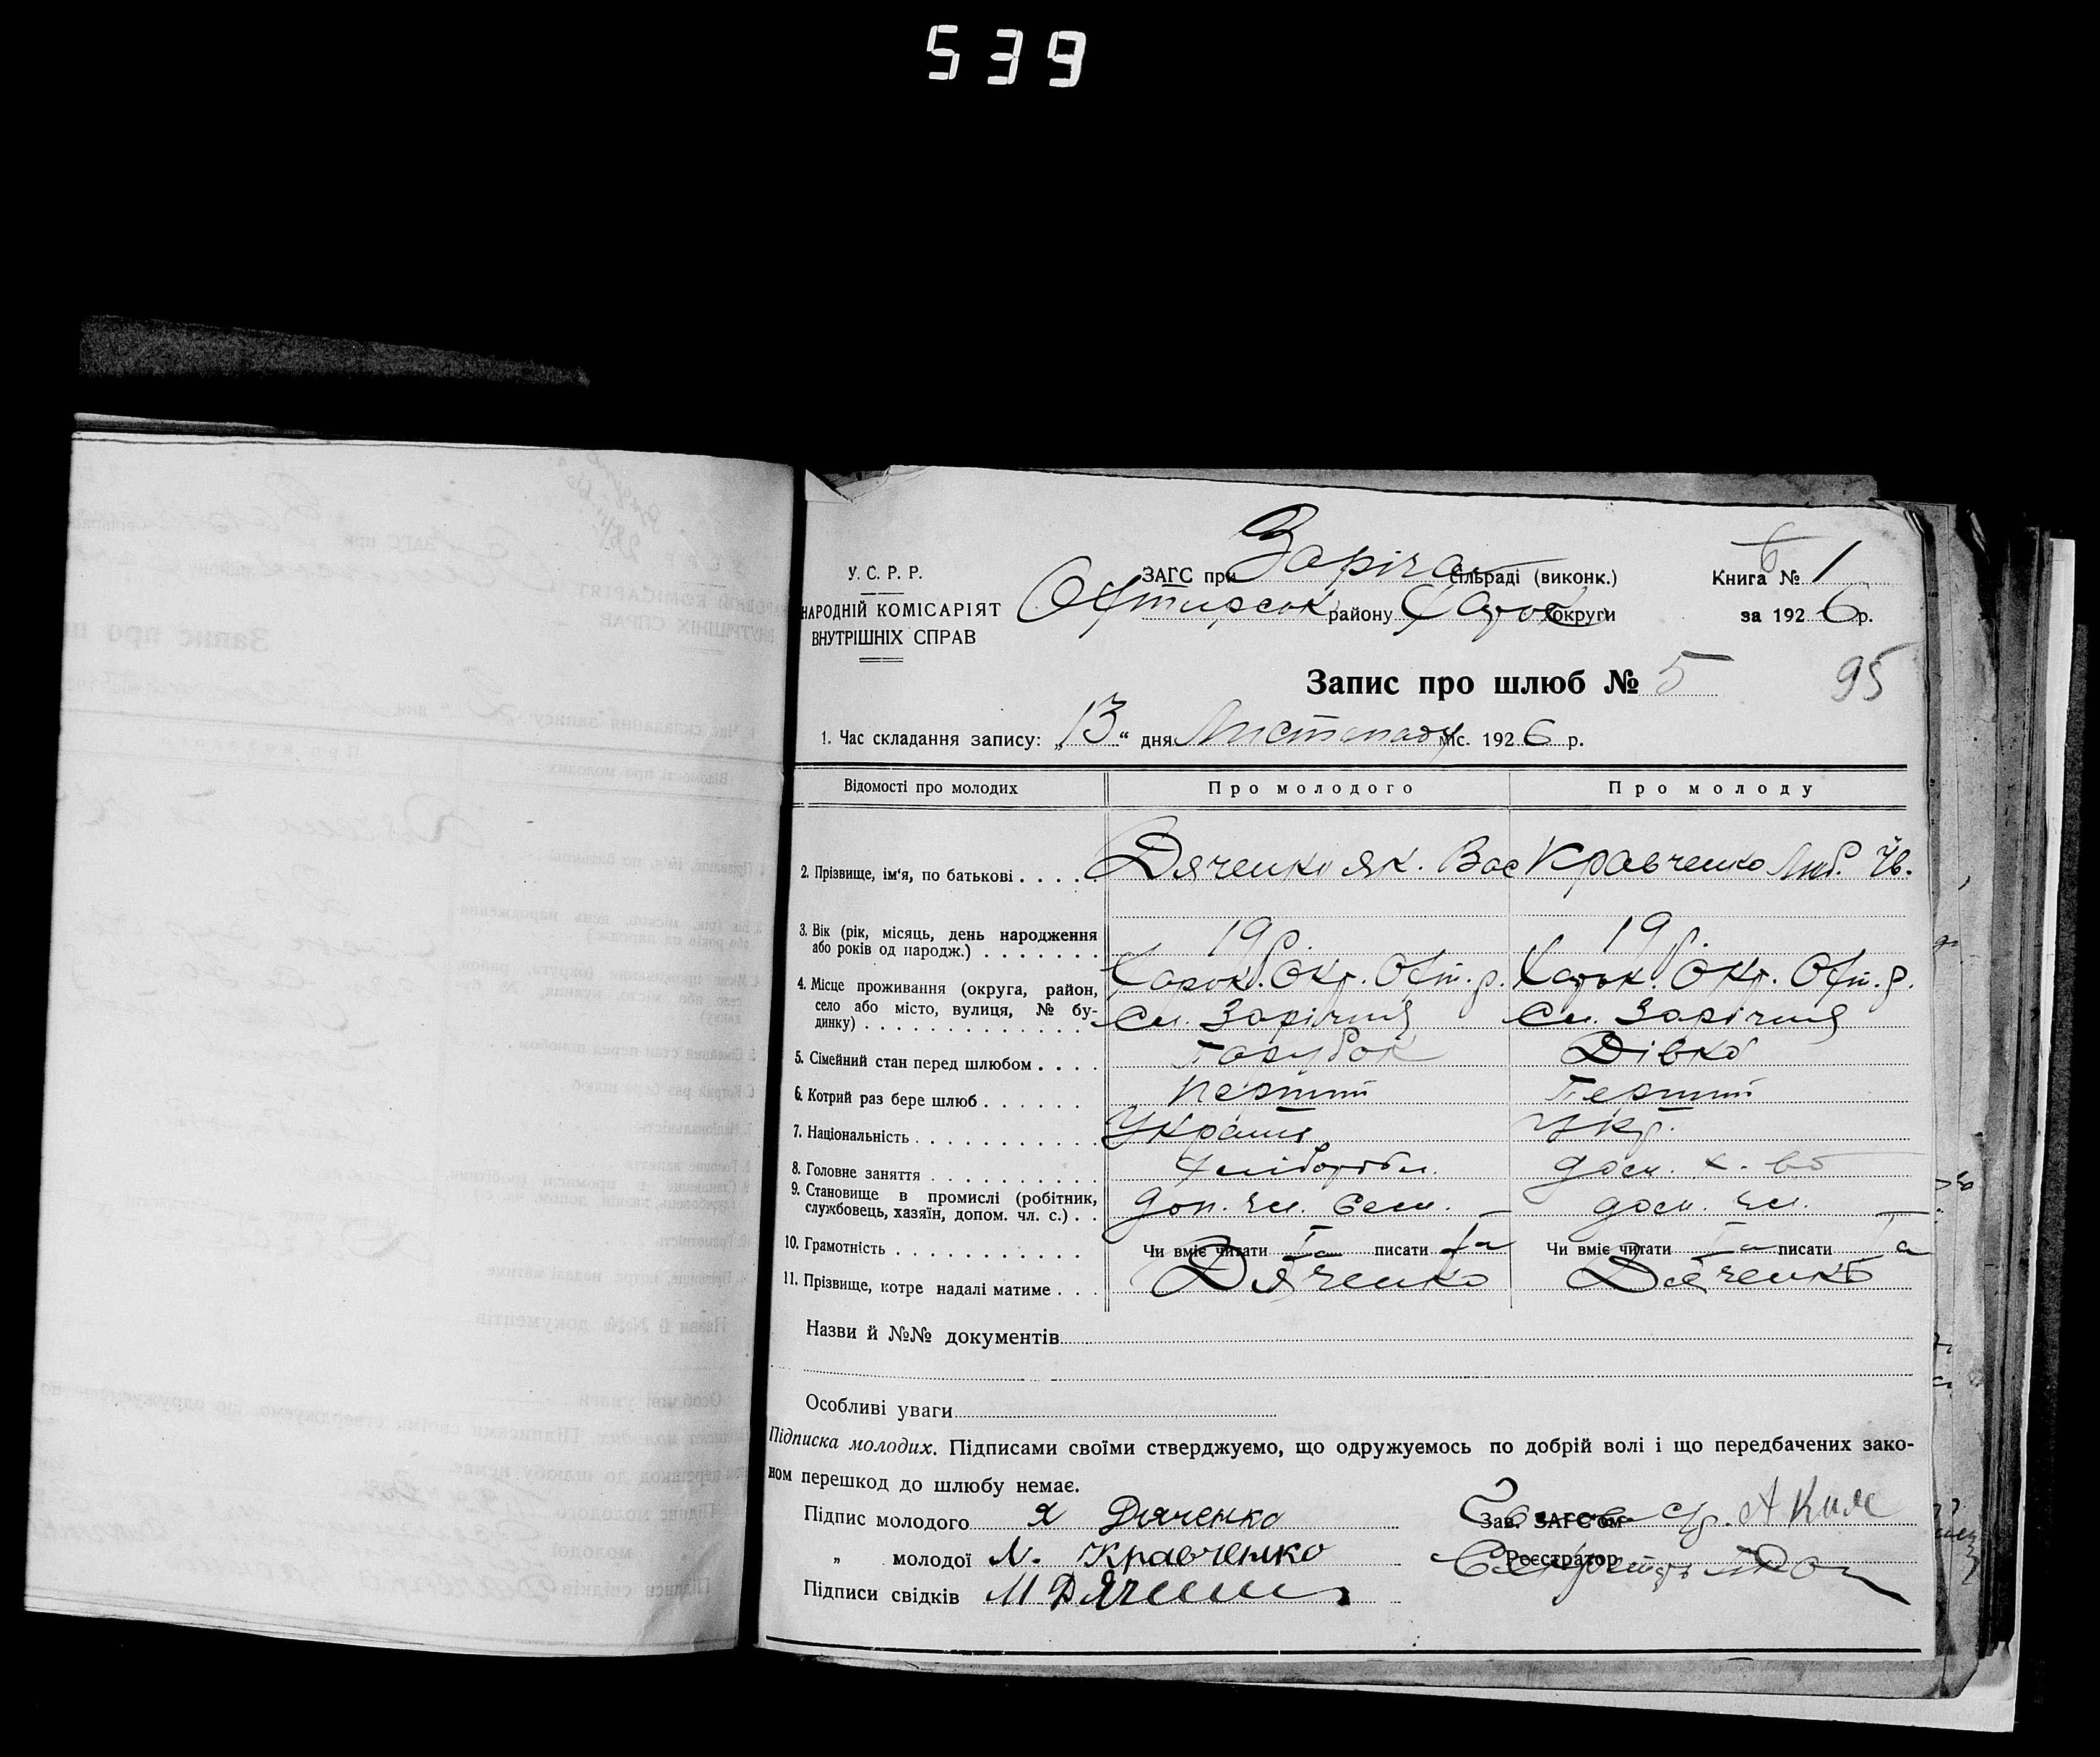 539
У. С. Р. Р.
НАРОДНІЙ КОМІСАРІЯТ
ВНУТРІШНІХ СПРАВ
ЗАГС при Зарічан сільраді (виконк.)
Охтирськ району Харьк округи
Книга № 1
6
за 1926 р.
Запис про шлюб № 5
95
1. Час складання запису: „13“ дня Листопаду міс. 1926 р.
Відомості про молодих Про молодого Про молоду
2. Прізвище, ім'я, по батькові . . . . Дяченко Як. Вас Кравченко Люб. Ів.
3. Вік (рік, місяць, день народження
або років од народж.) . . . . . . . 19 р. 19 р.
4. Місце проживання (округа, район, Харьк. Окр. Охт. р. Харьк. Окр. Охт. р.
село або місто, вулиця, № бу-
динку) . . . . . . . . . . . . . . Сл. Зарічня Сл. Зарічня
5. Сімейний стан перед шлюбом . . . . Парубок Дівка
6. Котрий раз бере шлюб . . . . . . перший Перший
7. Національність . . . . . . . . . . . Україн Укр.
8. Головне заняття . . . . . . . . . . Хлібороб
9. Становище в промислі (робітник,
службовець, хазяїн, допом. чл. с.) . . доп. чл. сем.
10. Грамотність . . . . . . . . . . . Чи вміє читати Та писати Та Чи вміє читати Та писати Та
11. Прізвище, котре надалі матиме . . . Дяченко Дяченко
Назви й №№ документів
Особливі уваги
Підписка молодих. Підписами своїми стверджуємо, що одружуємось по добрій волі і що передбачених зако-
ном перешкод до шлюбу немає.
Підпис молодого Я Дяченко
Зав. ЗАГС'ом
„ молодої Л. Кравченко
Реєстратор Секретарь
Підписи свідків М Дяченко